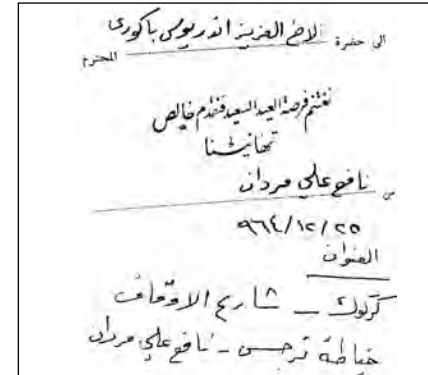 الى حضرة الاخ العزيز اندريوس باكوري
المحترم
نغتنم فرصة العيد السعيد فنقدم خالص
تهانينا
من نافع علي مردان
٩٦٤/١٢/٢٥
العنوان
كركوك - شارع الاوقاف
خياطة نرجس - نافع علي مردان